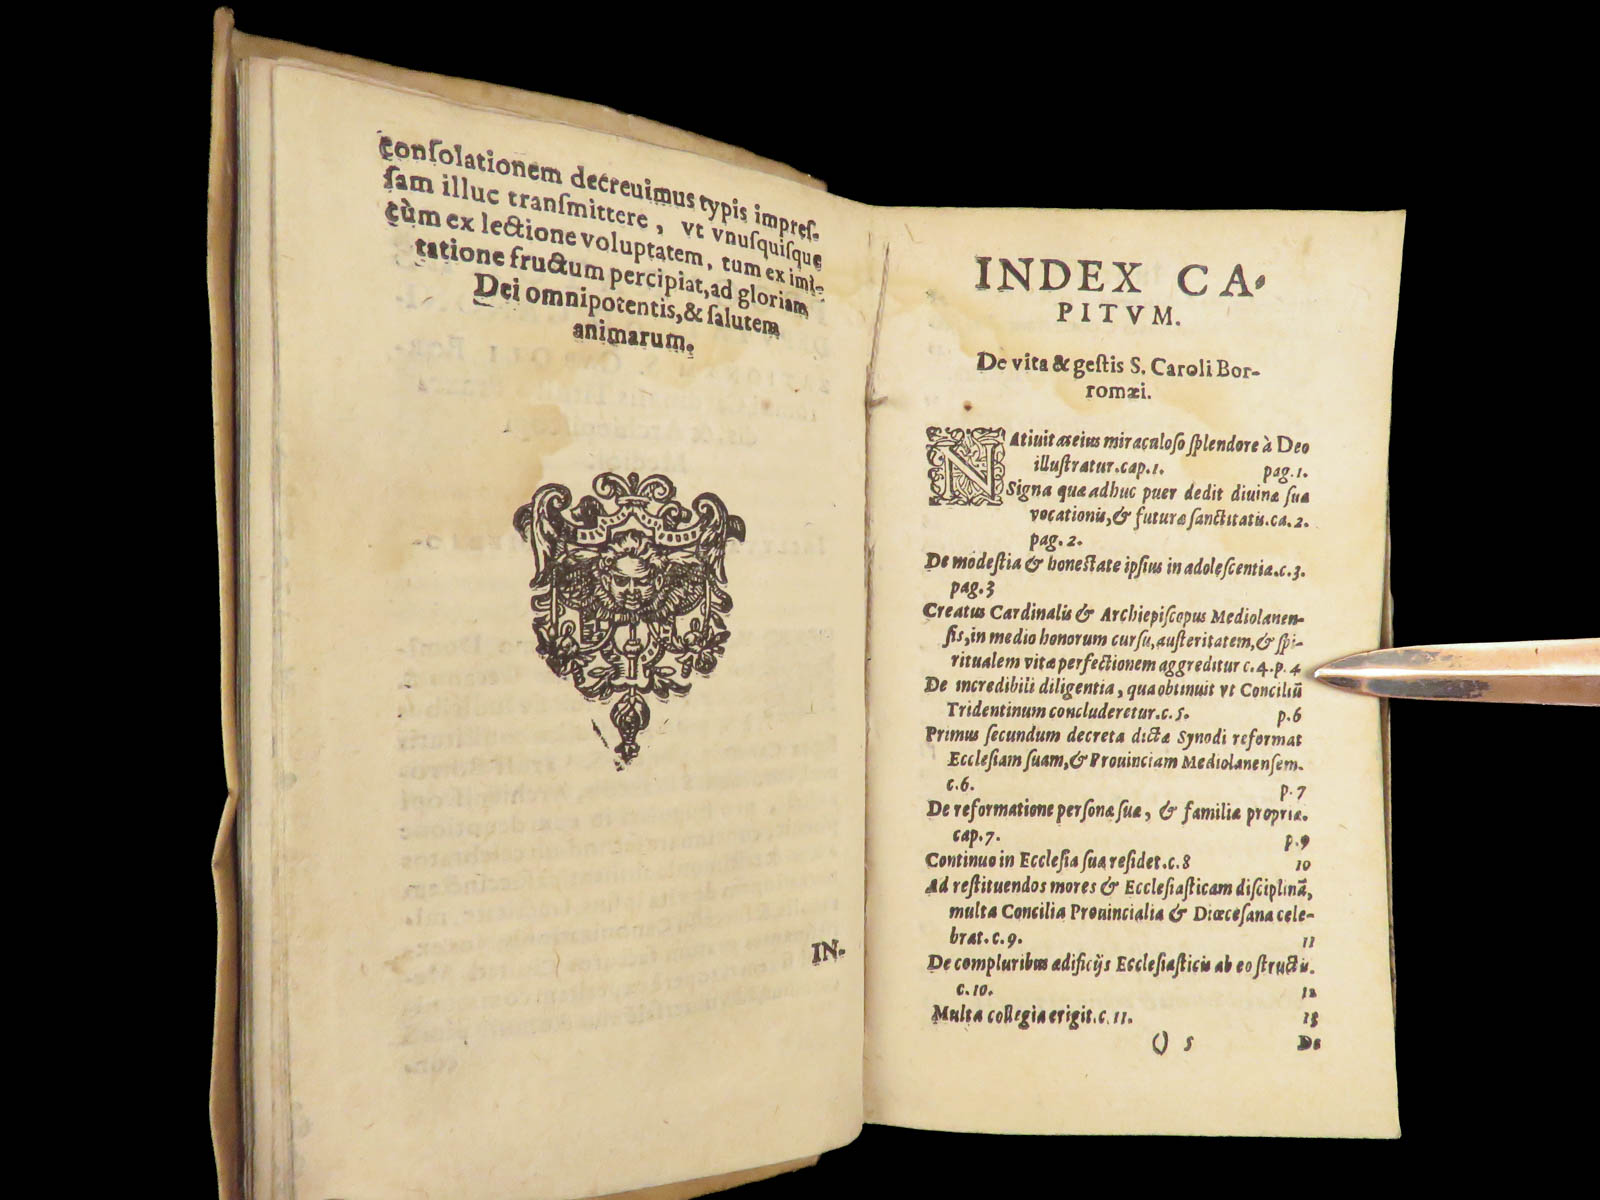 conſolationem decreuimus typis impreſ-
ſam illuc tranſmittere, vt vnuſquiſque
cùm ex lectione voluptatem, tum ex imi-
tatione fructum percipiat, ad gloriam
Dei omnipotentis, & ſalutem
animarum.
IN-
INDEX CA-
PITVM.
De vita & geſtis S. Caroli Bor-
romæi.
NAtiuitas eius miraculoſo ſplendore à Deo
illuſtratur. cap. 1. pag. 1.
Signa quæ adhuc puer dedit diuinæ ſuæ
vocationis, & futuræ ſanctitatis. ca. 2.
pag. 2.
De modeſtia & honeſtate ipſius in adoleſcentia. c. 3.
pag. 3
Creatus Cardinalis & Archiepiſcopus Mediolanen-
ſis, in medio honorum curſu, auſteritatem, & ſpi-
ritualem vitæ perfectionem aggreditur c. 4. p. 4
De incredibili diligentia, qua obtinuit vt Conciliũ
Tridentinum concluderetur. c. 5. p. 6
Primus ſecundum decreta dictæ Synodi reformat
Eccleſiam ſuam, & Prouinciam Mediolanenſem.
c. 6. p. 7
De reformatione perſonæ ſuæ, & familiæ propriæ.
cap. 7. p. 9
Continuo in Eccleſia ſua reſidet. c. 8 10
Ad reſtituendos mores & Eccleſiaſticam diſciplinã,
multa Concilia Prouincialia & Diœceſana cele-
brat. c. 9. 11
De compluribus ædificijs Eccleſiaſticis ab eo ſtructis.
c. 10. 12
Multa collegia erigit. c. 11. 13
() 5 De